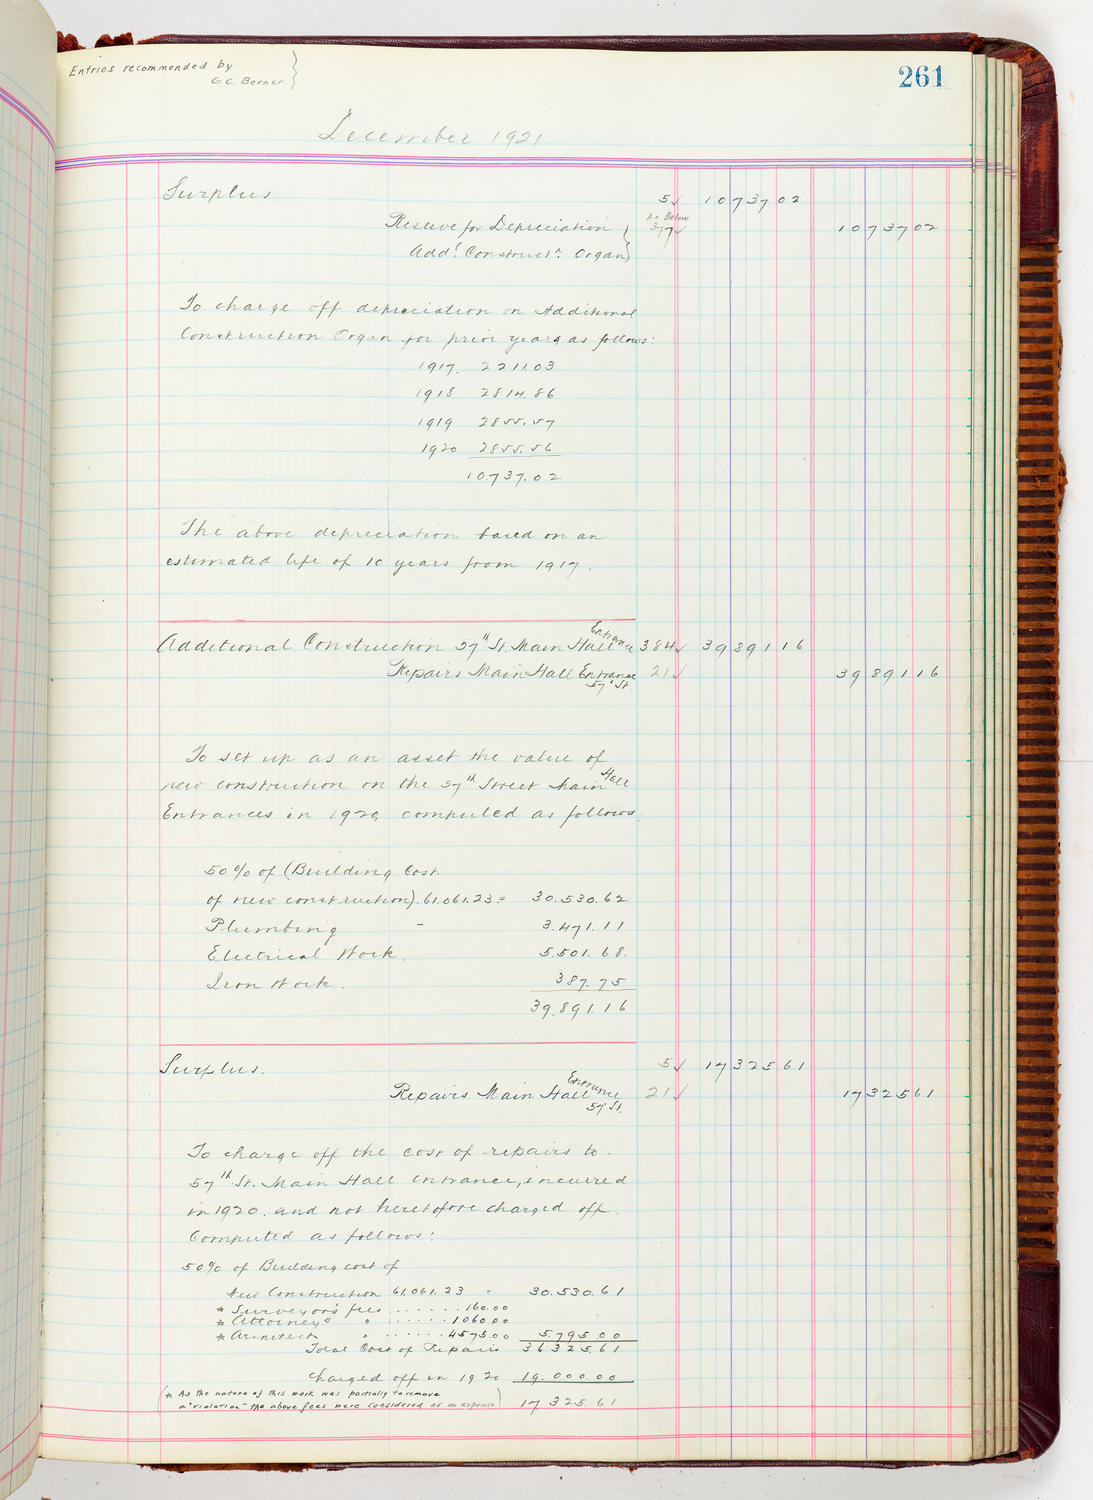 Entries recommended by
G. C. Berner.
261
December 1921
Surplus 5✓ 10737 02
As Below
Reserve for Depreciation 377✓ 10737 02
Add'l Construct'n Organ
To charge off depreciation on Additional
Construction Organ for prior years as follows:
1917. 2211.03
1918 2814.86
1919 2855.57
1920 2855.56
10.737.02
The above depreciation based on an
estimated life of 10 years from 1917.
Additional Construction 57th St. Main Hall Entrance 384✓ 39891 16
Repairs Main Hall Entrance 21✓ 39891 16
57' St.
To set up as an asset the value of
new construction on the 57th Street Main Hall
Entrances in 1920, computed as follows:
50% of (Building Cost.
of new construction). 61.061.23 = 30.530.62
Plumbing - 3.471.11
Electrical Work. 5.501.68.
Iron Work. 387.75
39.891.16
Surplus. 5✓ 17325 61
Repairs Main Hall Entrance 21✓ 17325 61
57' St.
To charge off the cost of repairs to
57th St. Main Hall entrance, incurred
in 1920. and not heretofore charged off.
Computed as follows:
50% of Building cost of
New Construction 61.061.23 = 30.530.61
* Surveyor's fees ....... 160.00
* Attorney's " ...... 1060.00
* Architect " ...... 4575.00 5.795.00
Total Cost of Repairs 36325.61
Charged off in 1920 19.000.00
(* As the nature of this work was partially to remove
a "violation" the above fees were considered as an expense) 17 325.61